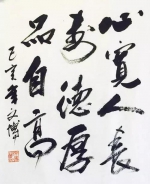 心寬人長
壽德厚
品自高
己亥年文博